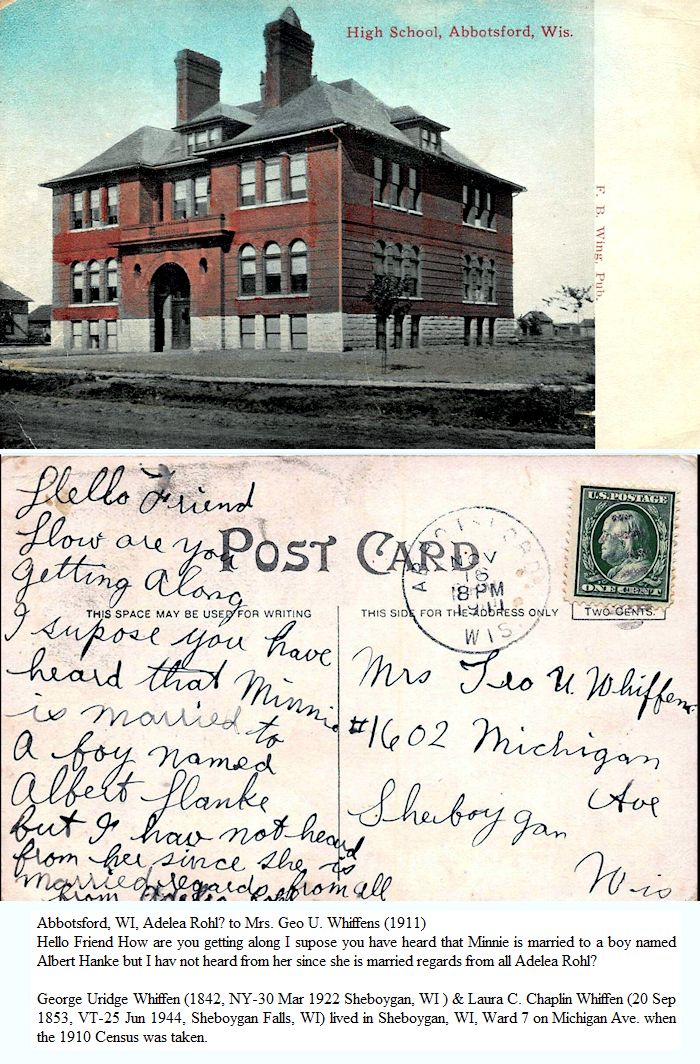 High School, Abbotsford, Wis.
F. B. Wing, Pub.
Hello Friend
How are you
getting along
I supose you have
heard that Minnie
is married to
a boy named
Albert Hanke
but I hav not heard
from her since she is
married regards from all
from
POST CARD
THIS SPACE MAY BE USED FOR WRITING
THIS SIDE FOR THE ADDRESS ONLY
NOV
16
8 PM
1911
WIS.
U.S. POSTAGE
ONE CENT
TWO CENTS.
Mrs Geo U. Whiffens
#1602 Michigan
Ave
Sheboygan
Wis
Abbotsford, WI, Adelea Rohl? to Mrs. Geo U. Whiffens (1911)
Hello Friend How are you getting along I supose you have heard that Minnie is married to a boy named
Albert Hanke but I hav not heard from her since she is married regards from all Adelea Rohl?
George Uridge Whiffen (1842, NY-30 Mar 1922 Sheboygan, WI ) & Laura C. Chaplin Whiffen (20 Sep
1853, VT-25 Jun 1944, Sheboygan Falls, WI) lived in Sheboygan, WI, Ward 7 on Michigan Ave. when
the 1910 Census was taken.